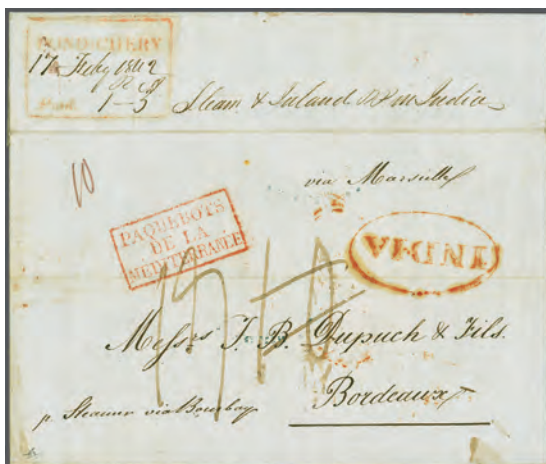 PONDICHERY
17 July 1842
Paid 1–3
Steam & Inland in India
via Marseille
10
PAQUEBOTS
DE LA
MÉDITERRANÉE
INDIA
Messrs J. B. Dupuch & Fils.
Bordeaux
p. Steamer via Bombay